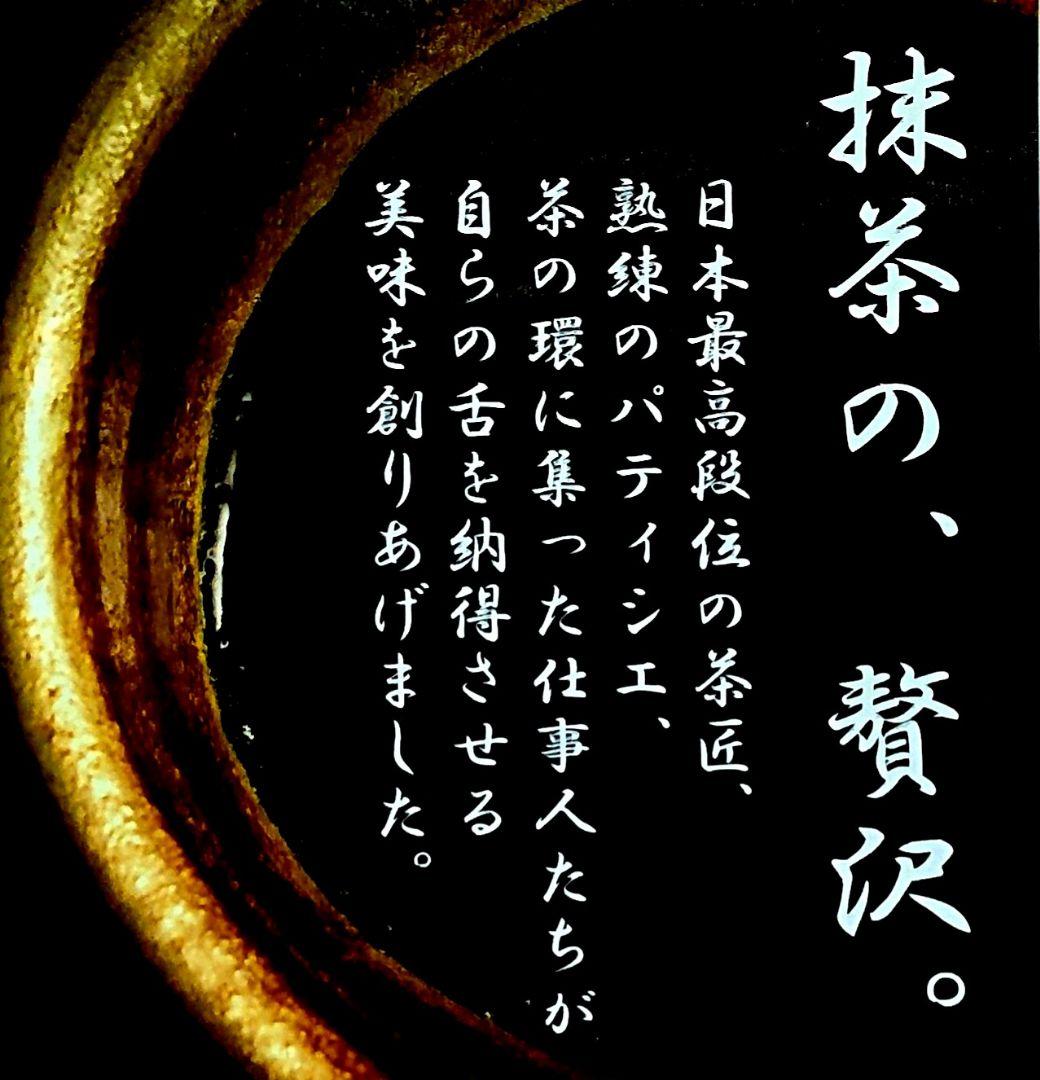 抹茶の、贅沢。
日本最高段位の茶匠、
熟練のパティシエ、
茶の環に集った仕事人たちが
自らの舌を納得させる
美味を創りあげました。